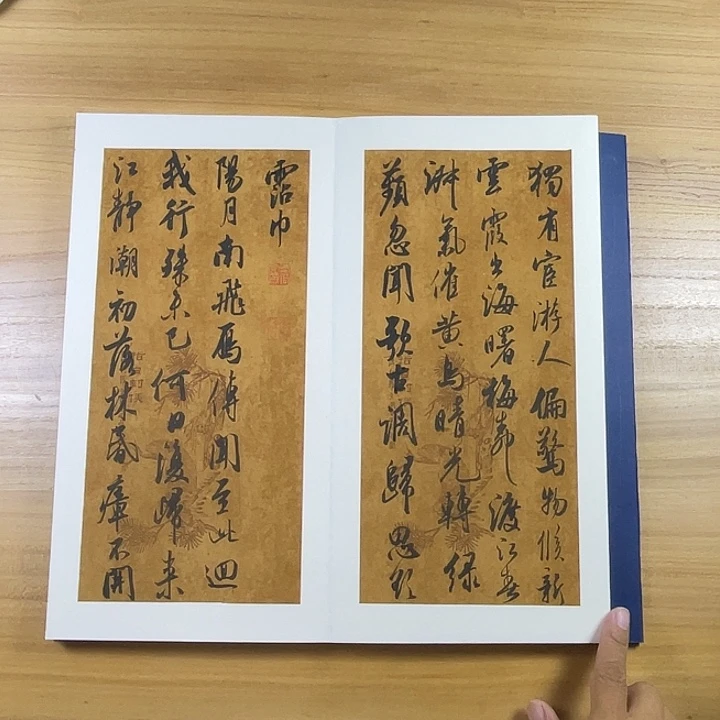 獨有宦游人偏驚物候新
雲霞出海曙梅柳渡江春
淑氣催黃鳥晴光轉綠
蘋忽聞歌古調歸思欲
霑巾
陽月南飛雁傳聞至此迴
我行殊未已何日復歸來
江靜潮初落林昏瘴不開